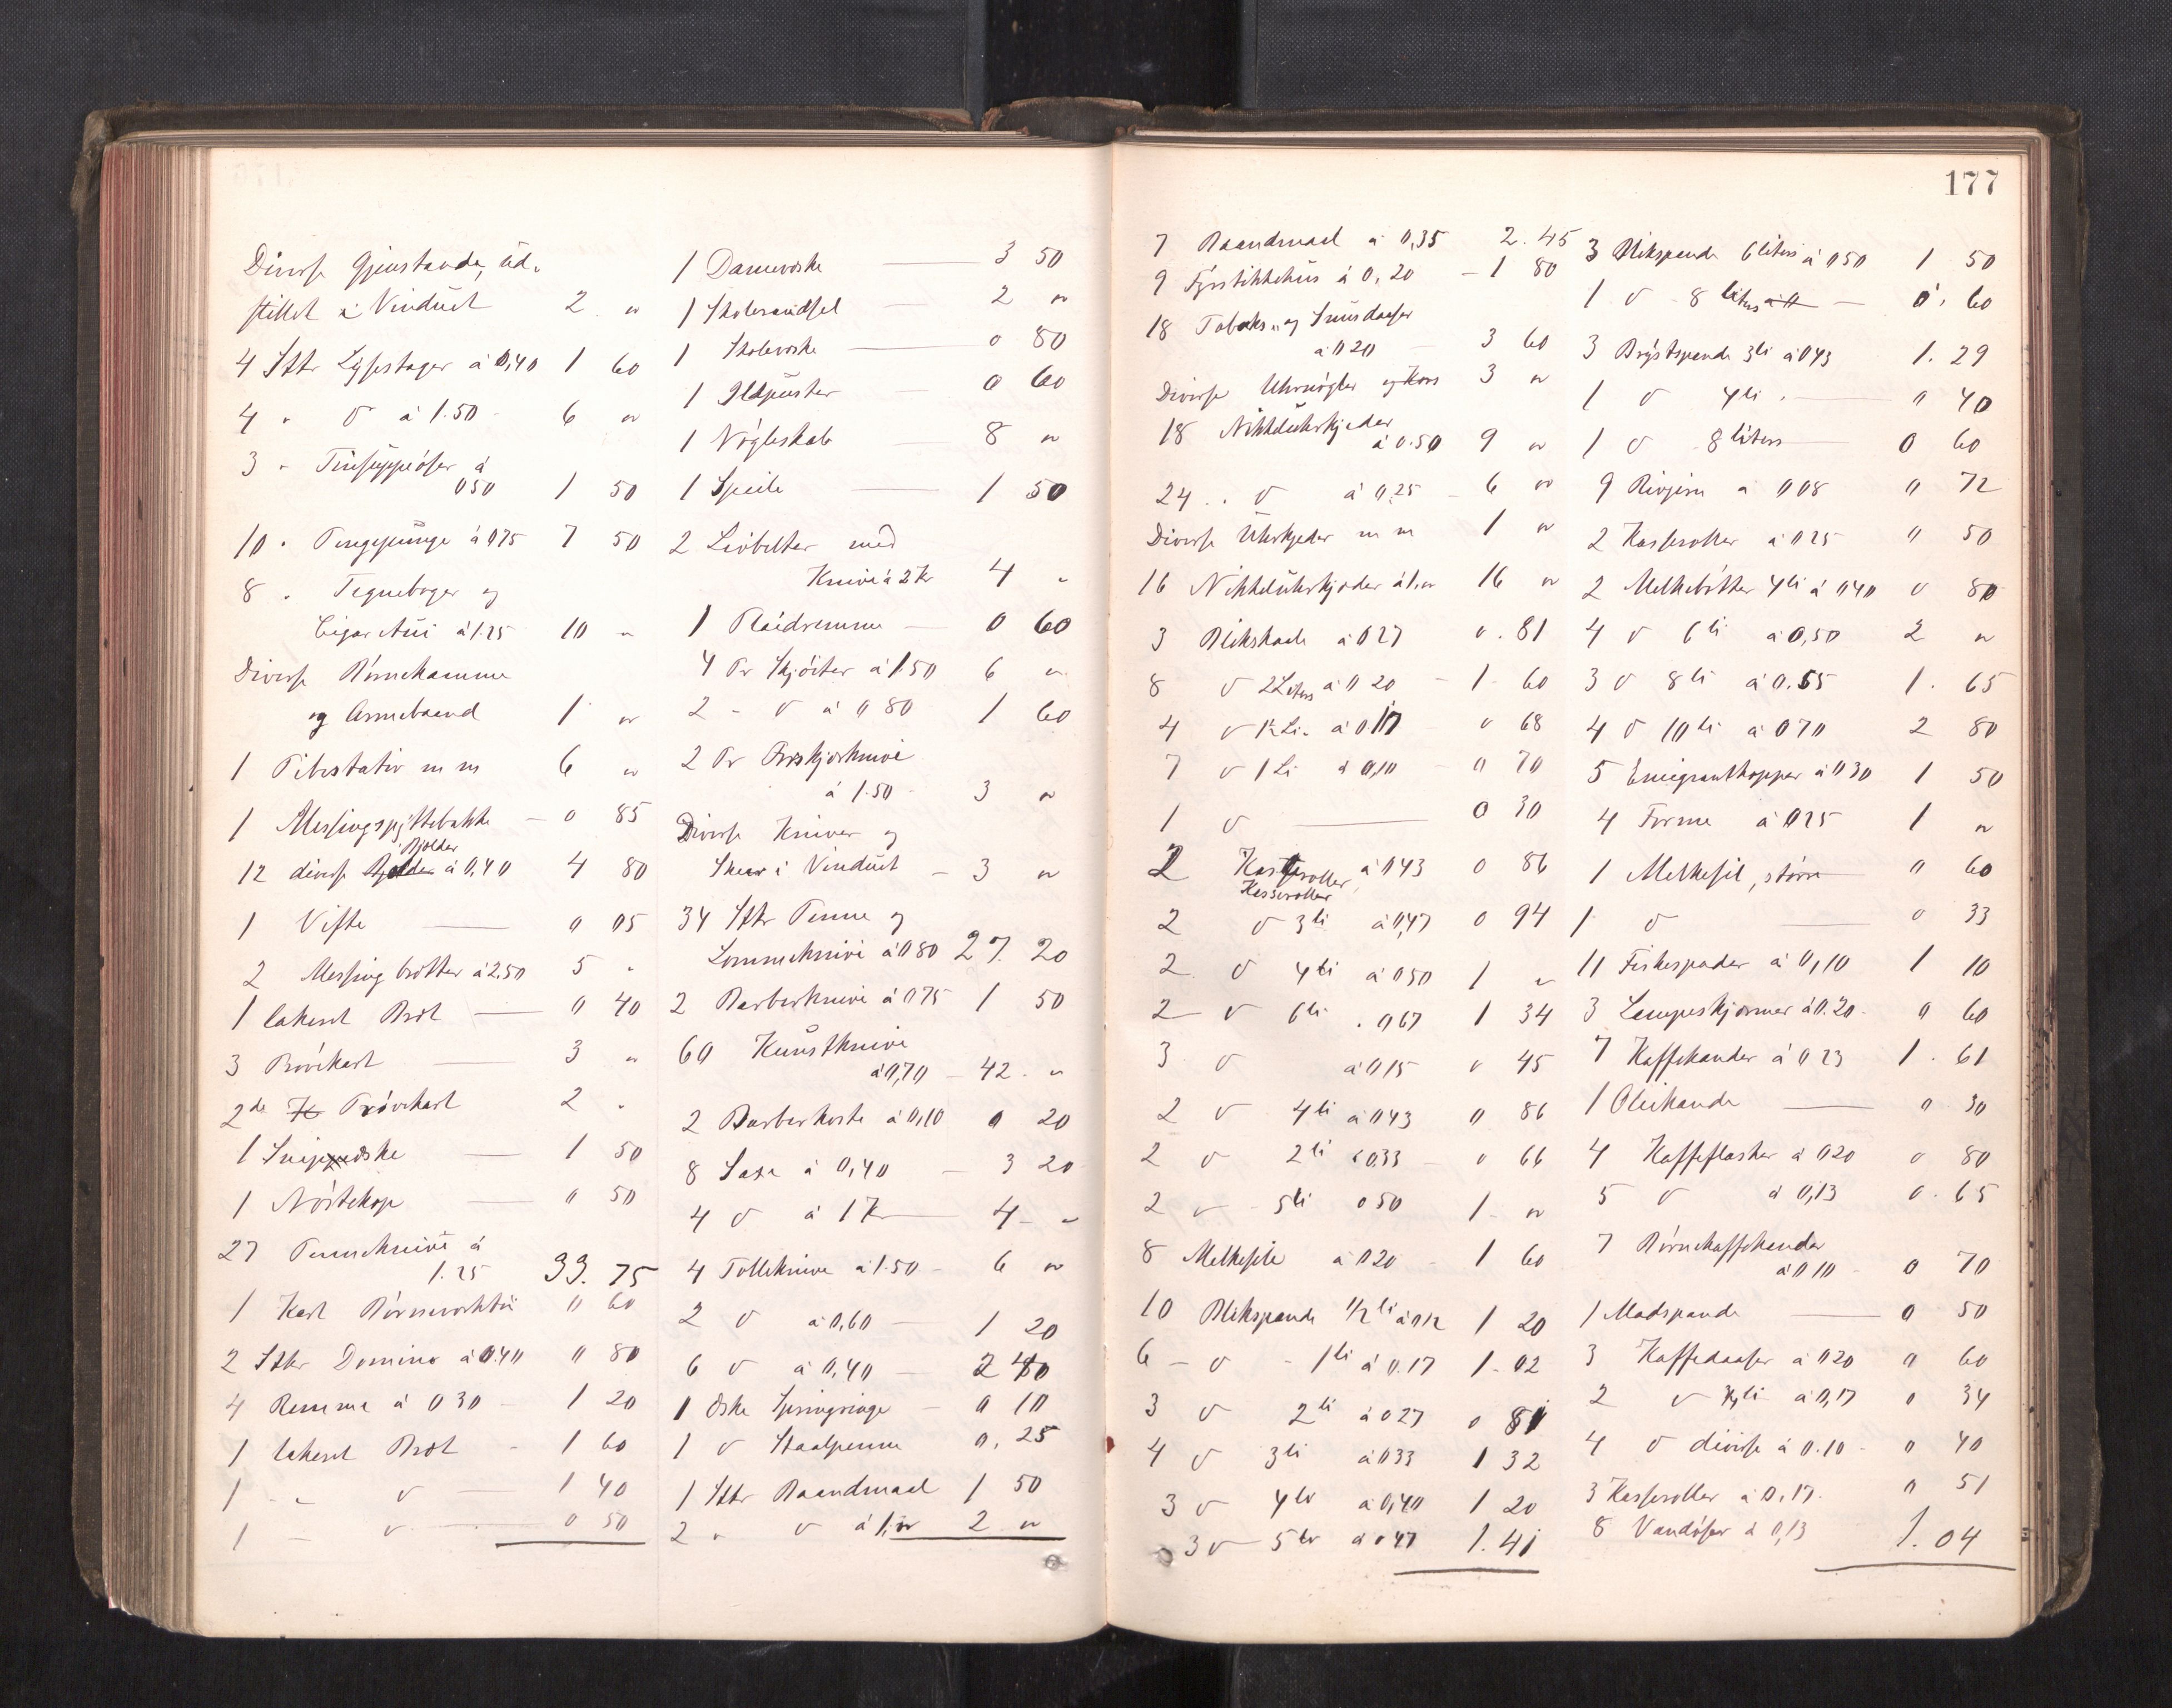 Diverse Gjenstande, üd-
stillet i Vindüet 2 "
4 Stkr Lysestager á 0,40 1 60
4 " d á 1.50 6 "
3 " Tinsüppeóser á
050 1 50
10 " Pengepünge á 075 7 50
8 " Tegnebøger og
Cigar Etüi á 1.25 10 "
Diverse Börnekamme
og Armebaand 1 "
1 Pibestativ m m 6 "
1 Messingspyttebakke 0 85
Bjelder
12 diverse á 0,40 4 80
1 Vifte 0 05
2 Messing bretter á 2.50 5 "
1 lakeret Bret 0 40
3 Brövkort 3 "
2de Prövekort 2 "
1 1 50
1 Nöstekop 0 50
27 Penneknive á
1.25 33. 75
1 Kort Börneverktöi 0 60
2 Stkr Domino á 0.40 0 80
4 Remme á 0 30 1 20
1 lakeret Bret 1 60
1 " d 1 40
1 " d 0 50
1 Dameveske 3 50
1 Skolerandsel 2 "
1 Skoleveske 0 80
1 Ildpüster 0 60
1 Nögleskab 8 "
1 Speile 1 50
2 Livbelter med
Knive á 2 Kr 4 "
1 Plaidremme 0 60
4 Pr Skjöiter á 1.50 6 "
2 " d á 0 80 1 60
2 Pr Forskjærknive
á 1.50 3 "
Diverse Kniver og
Skeer i Vindüet 3 "
34 Stkr Penne og
Lommeknive á 0 80 27. 20
2 Barberknive á 075 1 50
60 Künstknive
á 0,70 42. "
2 Barberkoste á 0,10 0 20
8 Saxe á 0,40 3 20
4 d á 1 Kr 4 "
4 Tolleknive á 1.50 6 "
2 d á 0,60 1 20
6 d á 0,40 2 40
1 Æske Springringe 0 10
1 d Staalpenne 0. 25
1 Stkr Baandmaal 1 50
2 " d á 1, " 2 "
177
7 Baandmaal á 0,35 2. 45
9 Fyrstikkehüs á 0,20 1 80
18 Tobaks- og Snüsdaaser
á 0 20 3 60
Diverse Uhrnögler og Kors 3 "
18 Nikkelührkjeder
á 0.50 9 "
24 " d á 0.25 6 "
Diverse Ührkjeder m m 1 "
16 Nikkelührkjeder á 1," 16 "
3 Blikskaale á 0 27 0. 81
8 d 2 Liters á 0 20 1 60
4 d 1½ Li. á 0 17 0 68
7 d 1 Li á 0,10 0 70
1 d 0 30
2 Kasseroller á 0 43 0 86
Kasseroller
2 d 3 li á 0,47 0 94
2 d 4 li á 0 50 1 "
2 d 6 li " 0 67 1 34
3 d á 0 15 0 45
2 d 4 li á 0 43 0 86
2 d 2 li á 0.33 0 66
2 d 5 li 0 50 1 "
8 Melkesile á 0 20 1 60
10 Blikspande 1/2 li á 0 12 1 20
6 d 1 li á 0.17 1 02
3 d 2 li á 0 27 0 81
4 d 3 li á 0 33 1 32
3 d 4 li á 0,40 1 20
3 d 5 li á 0 47 1. 41
3 Blikspande 6 liters á 0 50 1 50
1 d 8 liters á 0 0. 60
3 Brystspande 3 li á 0 43 1. 29
1 d 4 li 0 40
1 d 8 liters 0 60
9 Rivjern á 0 08 0 72
2 Kasseroller á 0 25 0 50
2 Melkebötter 4 li á 0 40 0 80
4 d 6 li á 0,50 2 "
3 d 8 li á 0.55 1. 65
4 d 10 li á 0 70 2 80
5 Emigrantkopper á 0 30 1 50
4 Forme á 0 25 1 "
1 Melkesil, större 0 60
1 d 0 33
11 Fiskespader á 0,10 1 10
3 Lampeskjermer á 0.20 0 60
7 Kaffekander á 0 23 1. 61
1 Oliekande 0 30
4 Kaffeflasker á 0 20 0 80
5 d á 0,13 0. 65
7 Börnekaffekander
á 0 10 0 70
1 Madspande 0 50
3 Kaffedaaser á 0 20 0 60
2 d á 0,17 0 34
4 d diverse á 0.10 0 40
3 Kasseroller á 0,17 0 51
8 Vandöser á 0,13 1. 04